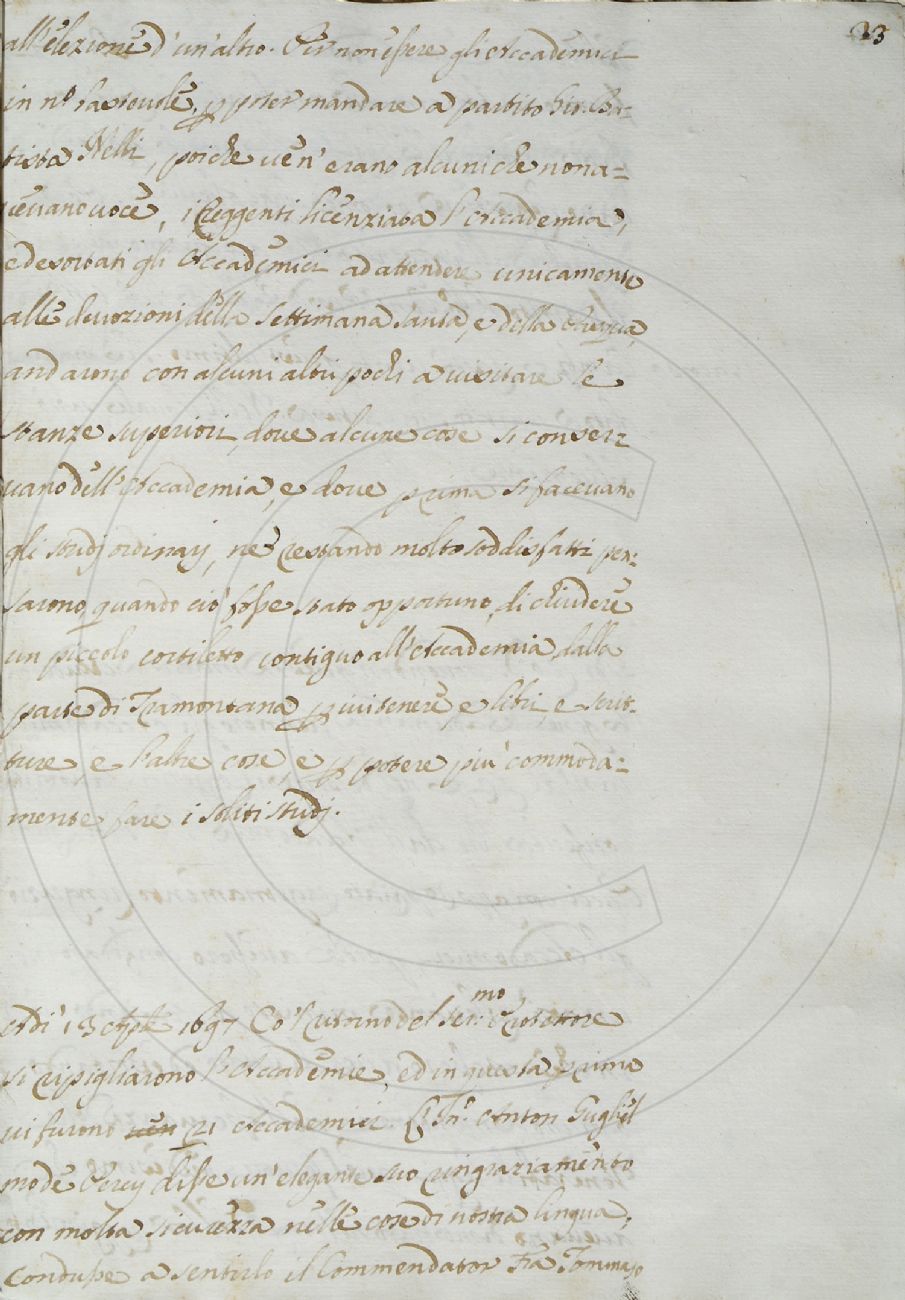 33
all'elezione d'un'altro. Per non essere gli Accademici
in n.º bastevole, p poter mandare a partito Gio: Ba-
tista Nelli, poiche ve n'erano alcuni che non a=
vevano voce, i Reggenti licenziata l'Accademia,
ed esortati gli Accademici ad attendere unicamente
alle devozioni della Settimana santa, e della
andarono con alcuni altri pochi a visitare le
stanze superiori, dove alcune cose si conser=
vano dell'Accademia, e dove prima si facevano
gli studj ordinarj, nè restando molto soddisfatti pen:
sarono quando ciò fosse stato opportuno, di chiudere
un piccolo cortiletto contiguo all'Accademia, dalla
parte di Tramontana p ivi tenere e libri, e scrit-
ture e l'altre cose e p potere più commoda=
mente fare i soliti studj.
Adì 13 Aple 1697 Co'l ritorno del Ser.mo Protettore
si ripigliarono l'Accademie, ed in questa prima
vi furono 21 Accademici. Il Sr. Anton Gugliel
mo de disse un'elegante suo ringraziamento
con molta sicurezza nelle cose di nostra lingua;
Condusse a sentirlo il Commendator Fra Tommaso